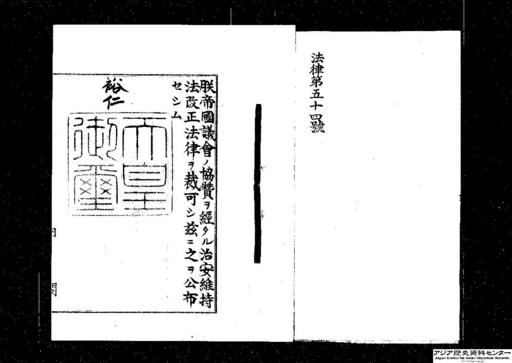 法律第五十四號
朕帝國議會ノ協贊ヲ經タル治安維持
法改正法律ヲ裁可シ茲ニ之ヲ公布
セシム
裕仁
天皇
御璽
アジア歴史資料センター
Japan Center for Asian Historical Records